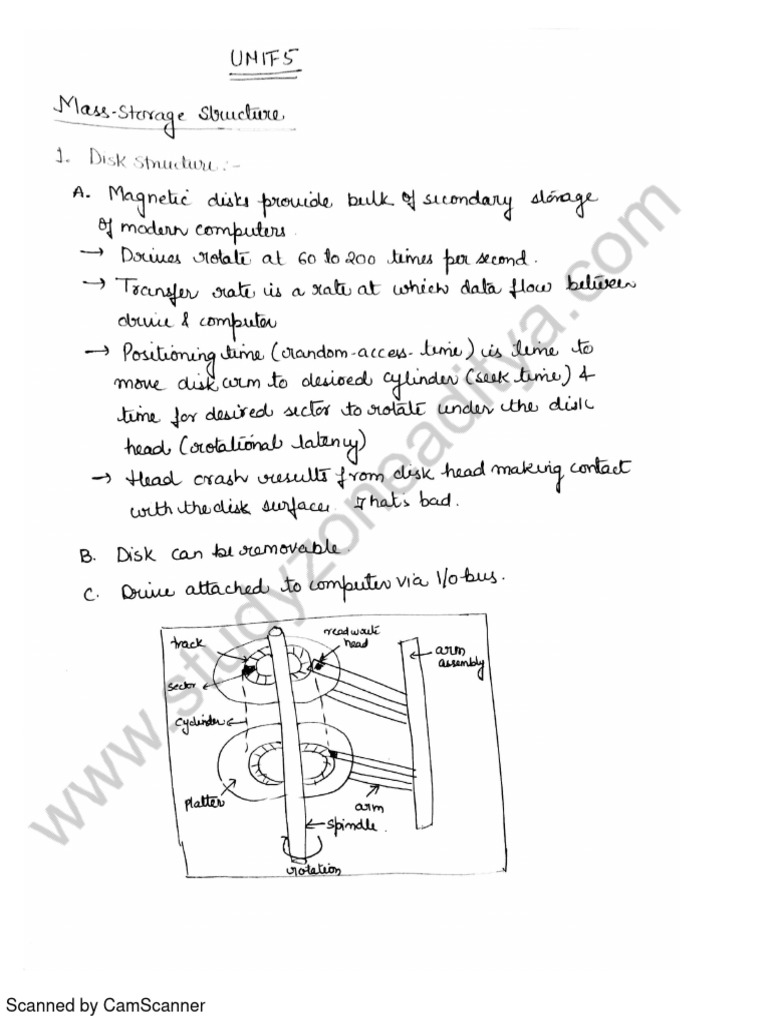 UNIT 5
Mass-Storage Structure
1. Disk Structure :-
A. Magnetic disks provide bulk of secondary storage
of modern computers.
→ Drives rotate at 60 to 200 times per second.
→ Transfer rate is a rate at which data flow between
drive & computer
→ Positioning time (random-access-time) is time to
move disk arm to desired cylinder (seek time) &
time for desired sector to rotate under the disk
head (rotational latency)
→ Head crash results from disk head making contact
with the disk surface. That's bad.
B. Disk can be removable.
C. Drive attached to computer via I/O bus.
track
read write
head
arm
assembly
sector
cylinder
platter
arm
spindle.
rotation
www.studyzoneaditya.com
Scanned by CamScanner